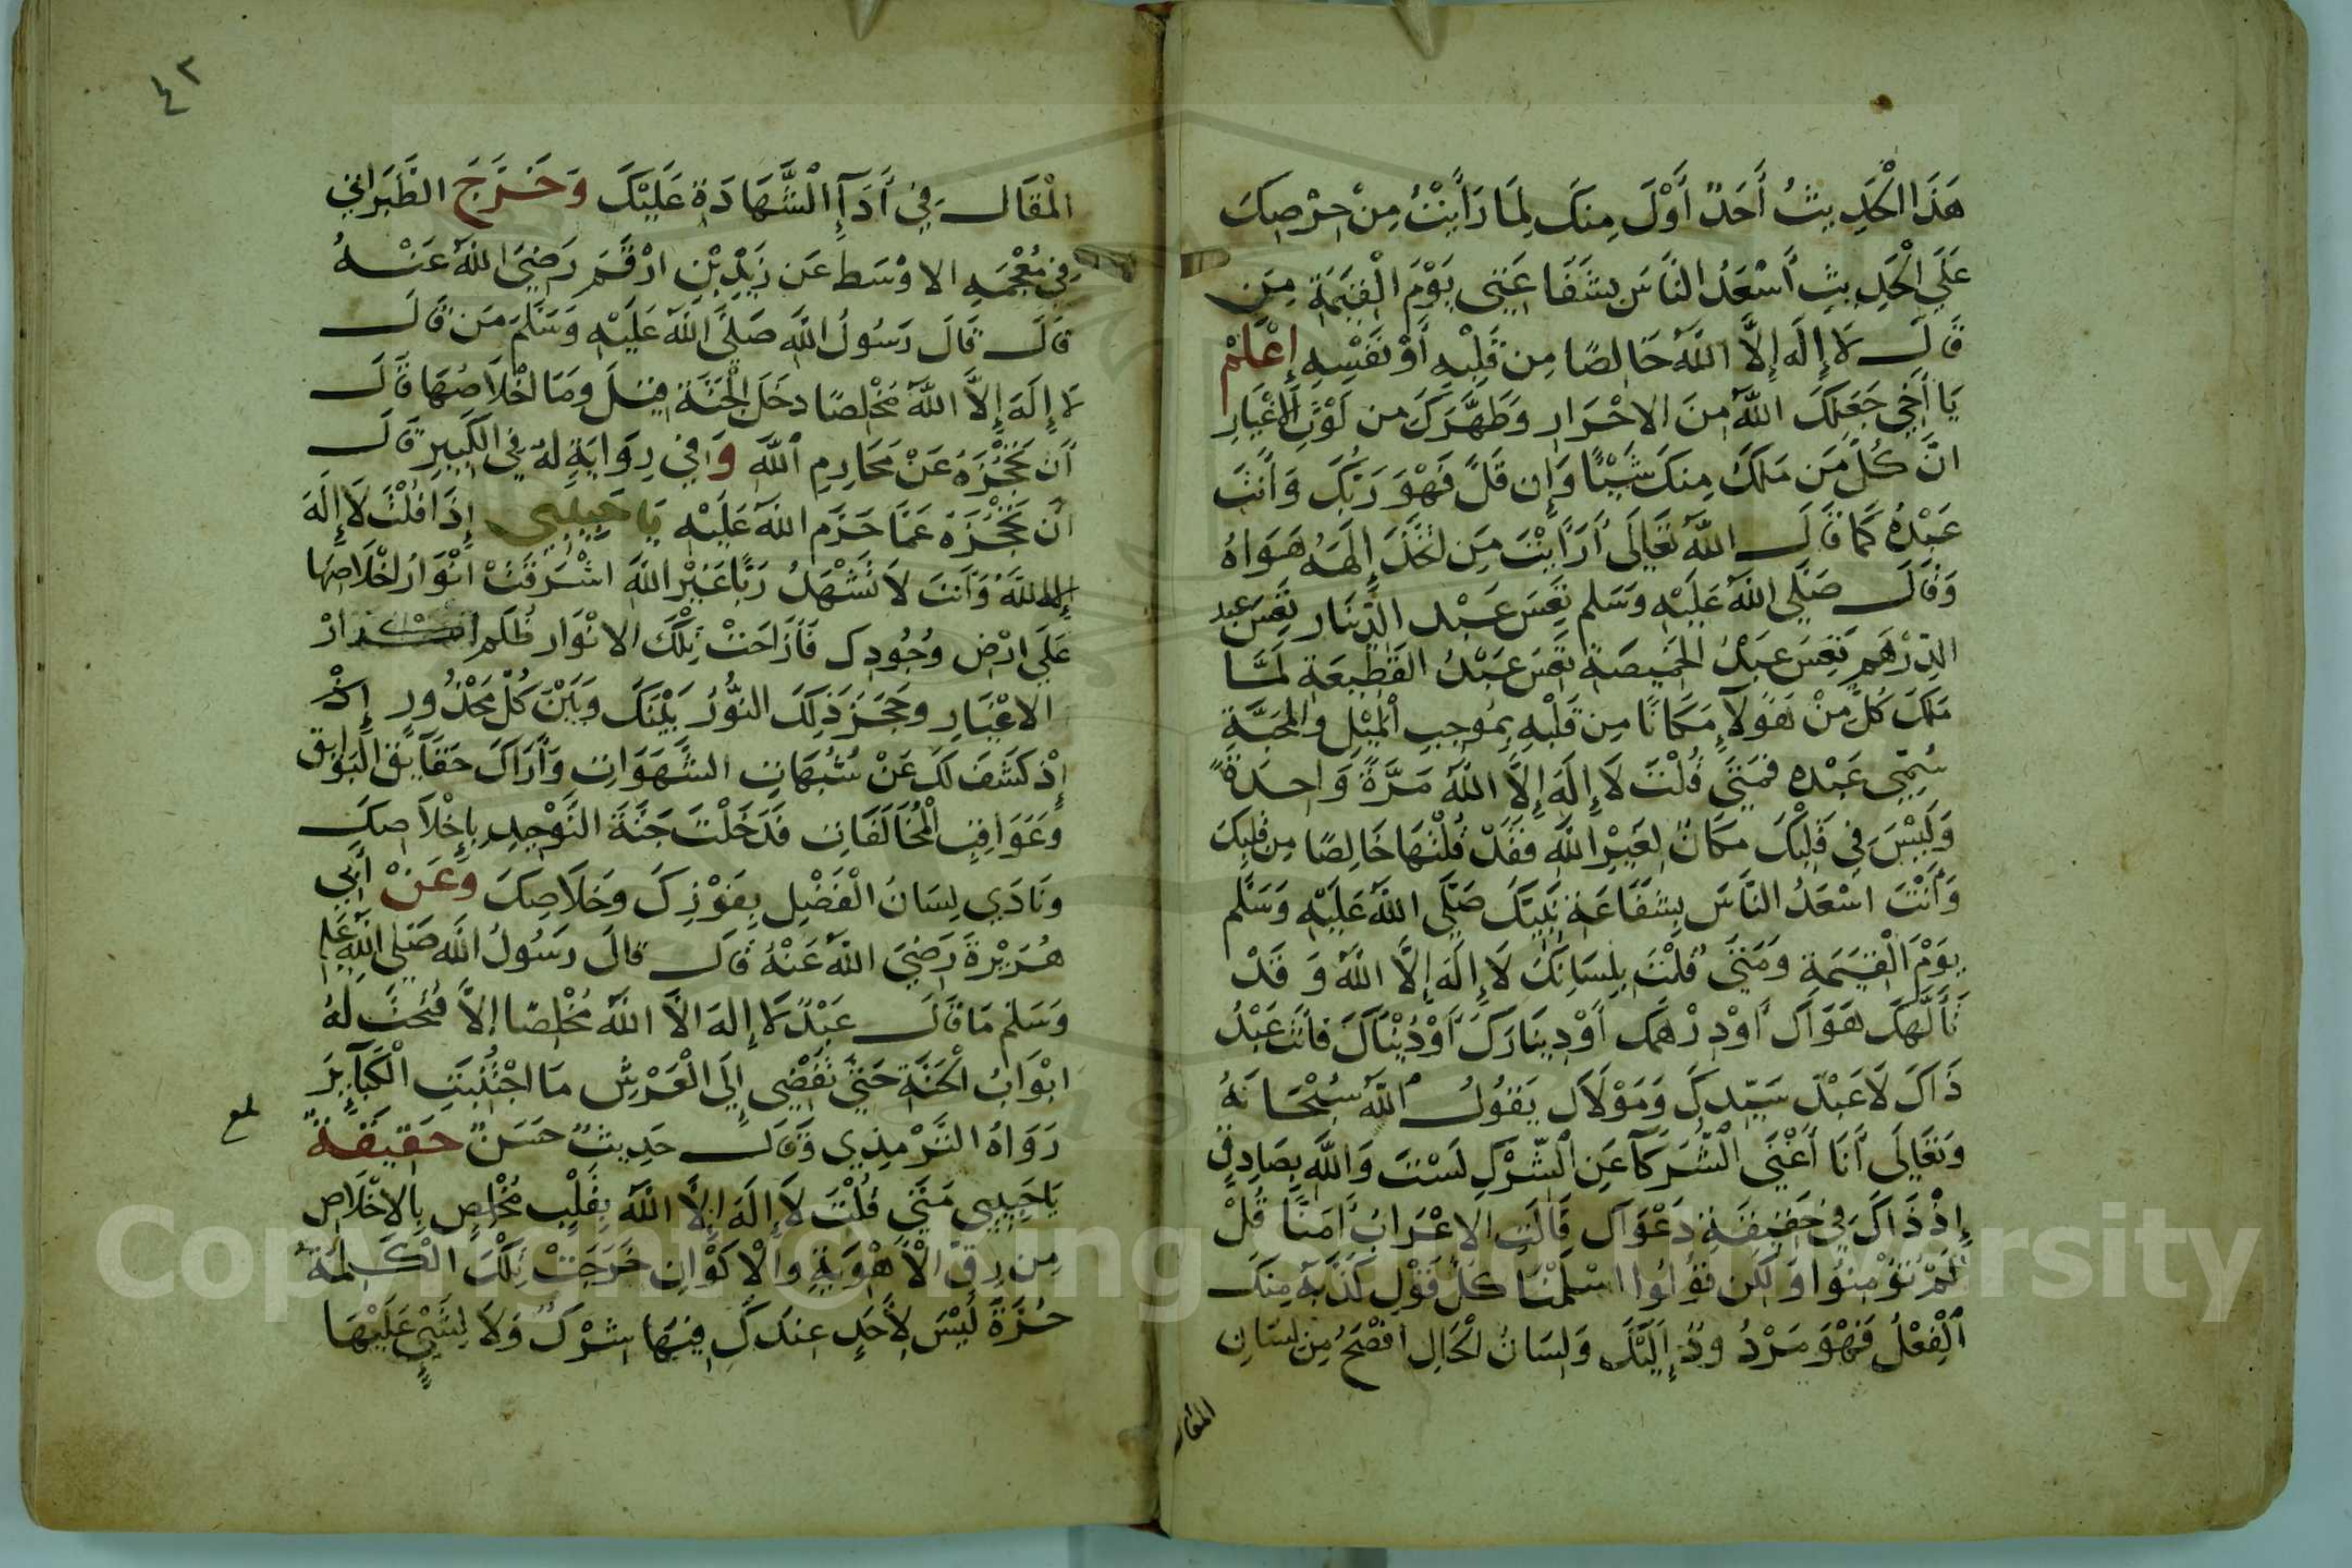 هَذَا الْحَدِيثُ أَحَدٌ أَوْلَ مِنكَ لِمَا رَأَيْتُ مِنْ حِرْصِكَ
عَلَي الْحَدِيثِ أَسْعَدُ النَّاسِ بِشَفَاعَتِي يَوْمَ الْقِيَمَةِ مِن
قَالَ لَا إِلَهَ إِلَّا اللَّهُ خَالِصًا مِن قَلْبِهِ أَوْ نَفْسِهِ إِعْلَمْ
يَا أَخِي جَعَلَكَ اللَّهُ مِنَ الاحْرَارِ وَطَهَّرَكَ من لَوْثِ الاغْيَارِ
انَّ كُلَّ مَن مَلَكَ مِنكَ شَيْئًا وَإِن قَلَّ فَهْوَ رَبُّكَ وَأَنتَ
عَبْدُهُ كَمَا قَالَ اللَّهُ تَعَالَى أَرَأَيْتَ مَنِ اتَّخَذَ إِلَهَهُ هَوَاهُ
وَقَالَ صَلَّي اللَّهُ عَلَيْهِ وَسَلم تَعِسَ عَبْد الدِّينَار تَعِسَ عبد
الدِّرْهَمِ تَعِسَ عَبْدُ الخَمِيصَةِ تَعِسَ عَبْدُ القَطِيعَةِ لَمَّا
مَلَكَ كُلٌّ مِنْ هَؤلَآءِ مَكَانًا مِن قَلْبِهِ بِمُوجِبِ الْمَيْلِ وَالْمَحَبَّةِ
سُمِّيَ عَبْدَه فَمَتَي قُلْتَ لَا إِلَهَ إِلَّا اللَّهُ مَرَّةً وَاحِدَةً
وَلَيْسَ فِي قَلْبِكَ مَكَانٌ لِغَيْرِ اللَّهِ فَقَدْ قُلْتَهَا خَالِصًا مِن قَلبِكَ
وَأَنْتَ اسْعَدُ النَّاسِ بِشَفَاعَةِ نَبِيِّكَ صَلَّي اللَّهُ عَلَيْهِ وَسَلَّم
يَوْمَ الْقِيَمَةِ وَمَتَي قُلْتَ بِلِسَانِكَ لَا إِلَهَ إِلَّا اللَّهُ وَقَدْ
تَأَلَّهَكَ هَوَاكَ أَوْ دِرْهَمَك أَوْ دِينَارَكَ أَوْ دُنْيَاكَ فَأَنتَ عَبْدُ
ذَاكَ لَا عَبْدَ سَيِّدِكَ وَمَوْلَاكَ يَقُولُ اللَّهُ سُبْحَانَهُ
وَتَعَالَى أَنَا أَغْنَي الشُّرَكَآءِ عَنِ الشِّرْكِ لَسْتَ وَاللَّهِ بِصَادِقٍ
إِذْ ذَاكَ فِي حَقِيقَةِ دَعْوَاكَ قَالَتِ الاعْرَابُ آمَنَّا قُلْ
لَمْ تُؤْمِنُوا وَلَكِن قُولُوا اسْلَمْنَا كُلُّ قَوْلٍ كَذَّبَهُ مِنكَ
الْفِعْلُ فَهْوَ مَرْدُودٌ إِلَيْكَ وَلِسَانُ الْحَالِ افْصَحُ مِن لِسَانِ
المقال
٤٢
الْمَقَالِ فِي أَدَآءِ الشَّهَادَةِ عَلَيْكَ وَخَرَّجَ الطَّبَرَانِي
فِي مُعْجَمِهِ الاوْسَطِ عَن زَيْدِ بْنِ ارْقَمَ رَضِيَ اللَّهُ عَنْهُ
قَالَ قَالَ رَسُولُ اللَّهِ صَلَّي اللَّهُ عَلَيْهِ وَسَلَّمَ مَن قَالَ
لَا إِلَهَ إِلَّا اللَّهُ مُخْلِصًا دخَلَ الْجَنَّةَ قِيلَ وَمَا اخْلَاصُهَا قَالَ
أَن تَحْجُزَهُ عَنْ مَحَارِمِ اللَّهِ وَفِي رِوَايَةٍ لَهُ فِي الْكَبِيرِ قَالَ
أَن تَحْجُزَهُ عَمَّا حَرَّمَ اللَّهُ عَلَيْهِ يَا حَبِيبِي إِذَا قُلْتَ لَا إِلَهَ
إِلا اللَّهُ وَأَنتَ لَا تَشْهَدُ رَبًّا غَيْرَ اللَّهِ اشْرَقَتْ انْوَارُ اخْلَاصِهَا
عَلَي ارْضِ وُجُودِكَ فَأَزَاحَتْ تِلْكَ الانْوَار ظُلَمَ اكْدَارْ
الاغْيَارِ وحَجَزَ ذَلِكَ النُّورُ بَيْنَكَ وَبَيْنَ كُلِّ مَحْذُورٍ إِذْ
إِذْ كَشَفَ لَكَ عَنْ شُبُهَاتِ الشَّهَوَاتِ وَأَرَاكَ حَقَآيِقَ الْبَوَايِق
وَعَوَاقِبَ الْمُخَالَفَاتِ فَدَخَلْتَ جَنَّةَ التَّوْحِيدِ بِإِخْلَاصِكَ
وَنَادَي لِسَانُ الْفَضْلِ بِفَوْزِكَ وَخَلَاصِكَ وَعَنْ أَبِي
هُرَيْرَةَ رَضِيَ اللَّهُ عَنْهُ قَالَ قَالَ رَسُولُ اللَّهِ صَلَّي اللَّهُ عَلَيْهِ
وَسَلم مَا قَالَ عَبْدٌ لَا إِلَهَ الَّا اللَّهُ مُخْلِصًا إلَّا فُتِحَتْ لَهُ
ابْوَابُ الْجَنَّةِ حَتَّي تُفْضِي إِلَي الْعَرْشِ مَا اجْتُنِبَتِ الْكَبَآيِرُ
رَوَاهُ التِّرْمذِي وَقَالَ حَدِيثٌ حَسَنٌ حَقِيقَةٌ
يَا حَبِيبِي مَتَي قُلْتَ لَا إِلَهَ إِلَّا اللَّهُ بِقَلْبٍ مُخْلِصٍ بِالاخْلَاصِ
مِن رِقِّ الْاهْوِيَةِ وَالْاكْوَانِ خَرَجَتْ تِلْكَ الْكَلِمَةُ
حُرَّةً لَيْسَ لِأَحَدٍ عِندَكَ فِيهَا شِرْكٌ وَلَا لِشَيْءٍ عَلَيْهَا
Copyright © King Saud University